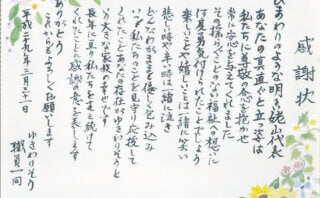 感謝状
ひまわりのような明るき姥山代表
あなたの真直ぐと立つ姿は
私たちに尊敬の念を抱かせ
常に安心を与えてくれました
その揺らぐことのない福祉への想いに
何度勇気付けられたことでしょう
楽しいことや嬉しいことは一緒に笑い
悲しい時や辛い時は一緒に泣き
どんなわがままも優しく包み込み
いつも私たちのことを見守り応援して
くれたことあなたの存在がゆきわりそうと
いう大きな家族の幸せです
長年に亘り私たちを支え続けて
くれたことに感謝の意を表します
ありがとう
これからもよろしくお願いします
平成二九年三月三十一日
ゆきわりそう
職員一同